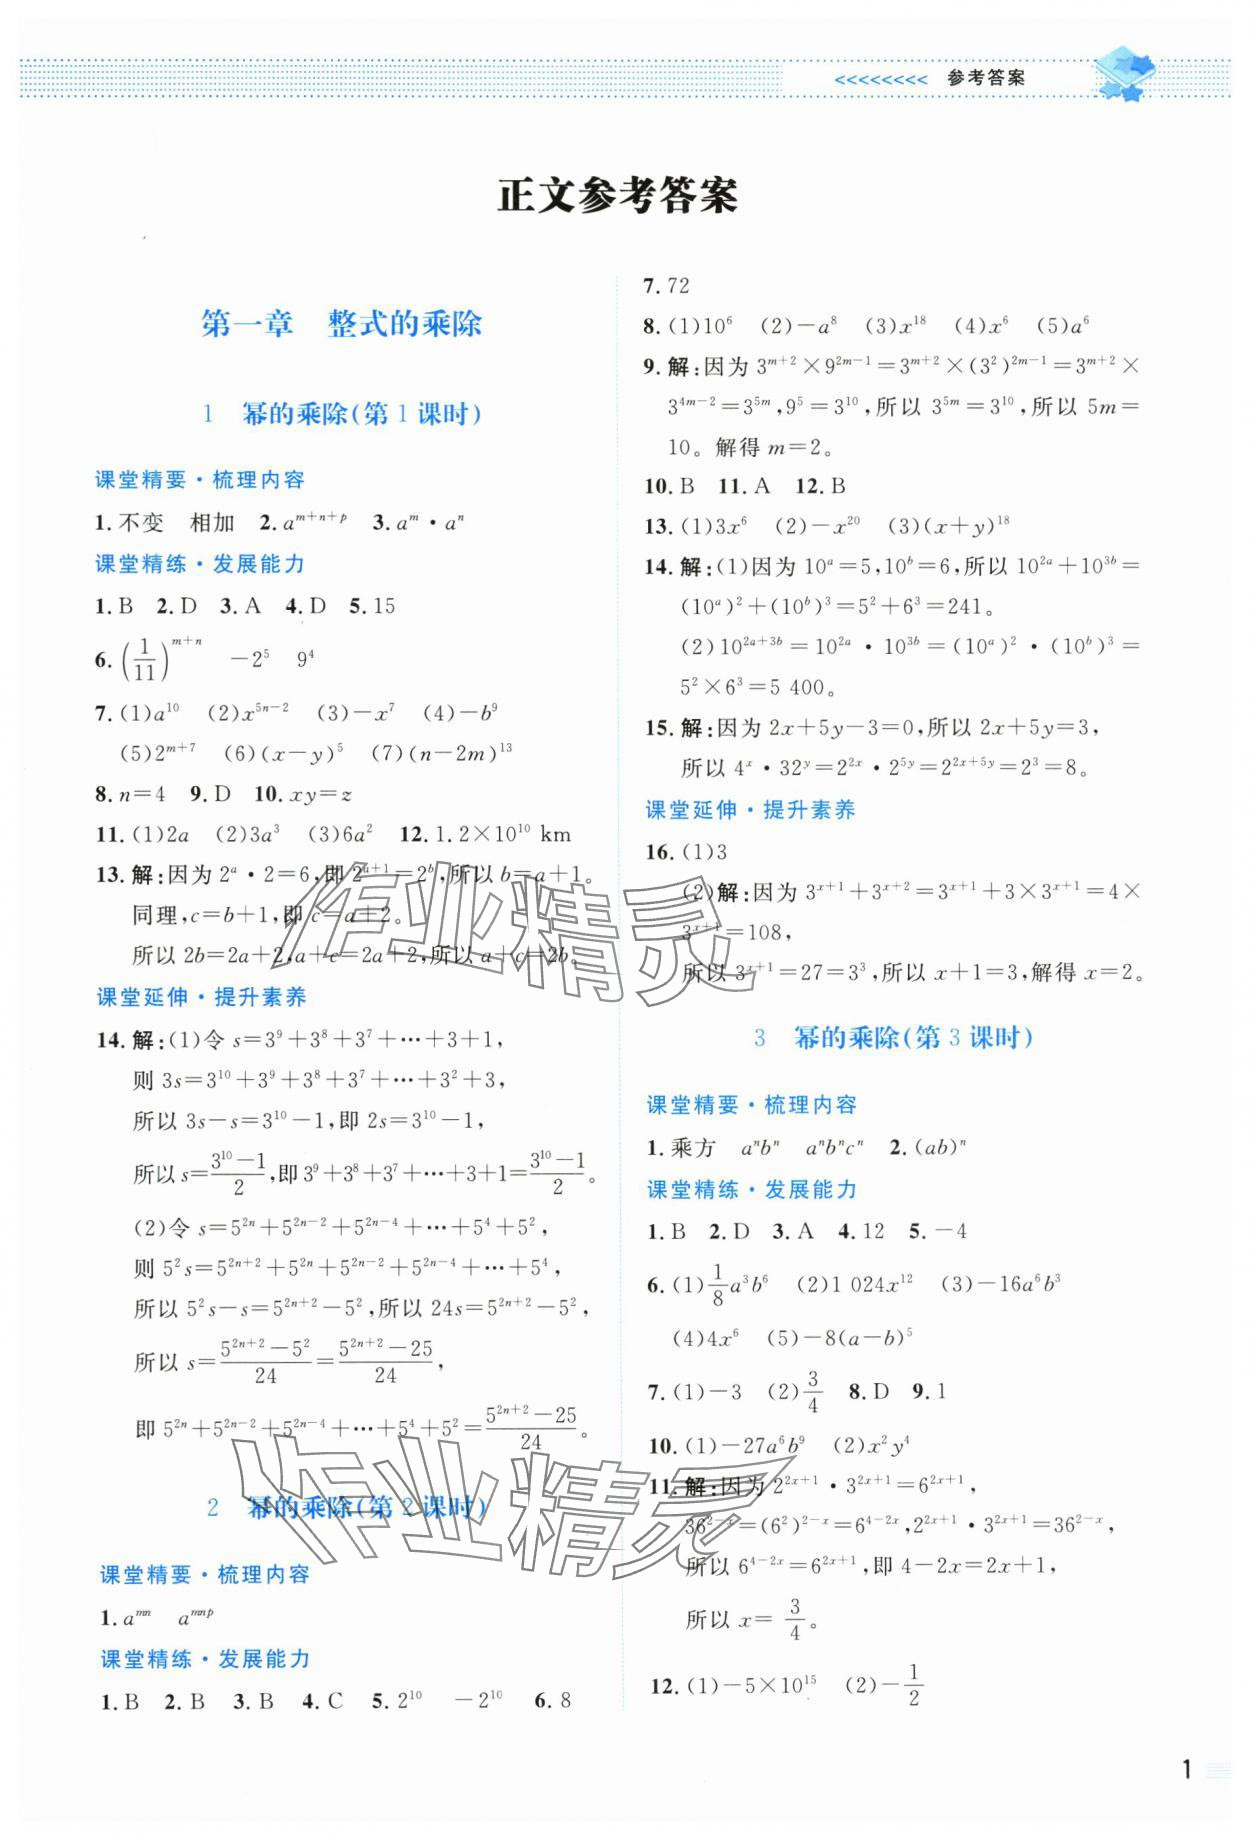 <<<<<<<< 参考答案
正文参考答案
第一章 整式的乘除
1 幂的乘除(第1课时)
课堂精要·梳理内容
1.不变 相加 2.a^{m+n+p} 3.a^m·a^n
课堂精练·发展能力
1.B 2.D 3.A 4.D 5.15
6.(1/11)^{m+n} -2^5 9^4
7.(1)a^{10} (2)x^{5n-2} (3)-x^7 (4)-b^9
(5)2^{m+7} (6)(x-y)^5 (7)(n-2m)^{13}
8.n=4 9.D 10.xy=z
11.(1)2a (2)3a^3 (3)6a^2 12.1.2×10^{10} km
13.解:因为2^a·2=6,即2^{a+1}=2^b,所以b=a+1。
同理,c=b+1,即c=a+2。
所以2b=2a+2,a+c=2a+2,所以a+c=2b。
课堂延伸·提升素养
14.解:(1)令s=3^9+3^8+3^7+…+3+1,
则3s=3^{10}+3^9+3^8+3^7+…+3^2+3,
所以3s-s=3^{10}-1,即2s=3^{10}-1,
所以s=(3^{10}-1)/2,即3^9+3^8+3^7+…+3+1=(3^{10}-1)/2。
(2)令s=5^{2n}+5^{2n-2}+5^{2n-4}+…+5^4+5^2,
则5^2s=5^{2n+2}+5^{2n}+5^{2n-2}+5^{2n-4}+…+5^4,
所以5^2s-s=5^{2n+2}-5^2,所以24s=5^{2n+2}-5^2,
所以s=(5^{2n+2}-5^2)/24=(5^{2n+2}-25)/24,
即5^{2n}+5^{2n-2}+5^{2n-4}+…+5^4+5^2=(5^{2n+2}-25)/24。
2 幂的乘除(第2课时)
课堂精要·梳理内容
1.a^{mn} a^{mnp}
课堂精练·发展能力
1.B 2.B 3.B 4.C 5.2^{10} -2^{10} 6.8
7.72
8.(1)10^6 (2)-a^8 (3)x^{18} (4)x^6 (5)a^6
9.解:因为3^{m+2}×9^{2m-1}=3^{m+2}×(3^2)^{2m-1}=3^{m+2}×
3^{4m-2}=3^{5m},9^5=3^{10},所以3^{5m}=3^{10},所以5m=
10。解得m=2。
10.B 11.A 12.B
13.(1)3x^6 (2)-x^{20} (3)(x+y)^{18}
14.解:(1)因为10^a=5,10^b=6,所以10^{2a}+10^{3b}=
(10^a)^2+(10^b)^3=5^2+6^3=241。
(2)10^{2a+3b}=10^{2a}·10^{3b}=(10^a)^2·(10^b)^3=
5^2×6^3=5 400。
15.解:因为2x+5y-3=0,所以2x+5y=3,
所以4^x·32^y=2^{2x}·2^{5y}=2^{2x+5y}=2^3=8。
课堂延伸·提升素养
16.(1)3
(2)解:因为3^{x+1}+3^{x+2}=3^{x+1}+3×3^{x+1}=4×
3^{x+1}=108,
所以3^{x+1}=27=3^3,所以x+1=3,解得x=2。
3 幂的乘除(第3课时)
课堂精要·梳理内容
1.乘方 a^nb^n a^nb^nc^n 2.(ab)^n
课堂精练·发展能力
1.B 2.D 3.A 4.12 5.-4
6.(1)1/8a^3b^6 (2)1 024x^{12} (3)-16a^6b^3
(4)4x^6 (5)-8(a-b)^5
7.(1)-3 (2)3/4 8.D 9.1
10.(1)-27a^6b^9 (2)x^2y^4
11.解:因为2^{2x+1}·3^{2x+1}=6^{2x+1},
36^{2-x}=(6^2)^{2-x}=6^{4-2x},2^{2x+1}·3^{2x+1}=36^{2-x},
所以6^{4-2x}=6^{2x+1},即4-2x=2x+1,
所以x=3/4。
12.(1)-5×10^{15} (2)-1/2
1
作业精灵
作业精灵